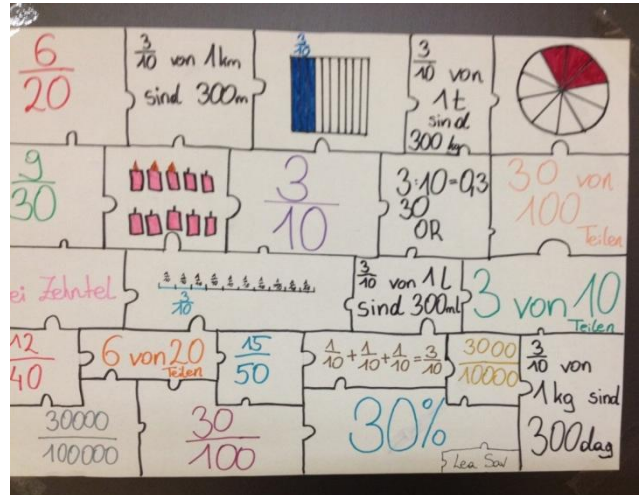 6
20
3
10 von 1km
sind 300m
3
10
3
10 von
1t
sind
300 kg
9
30
3
10
3:10=0,3
30
OR
30 von
100
Teilen
ei Zehntel
3
10
3
10 von 1L
sind 300ml
3 von 10
Teilen
12
40
6 von 20
Teilen
15
50
1/10 + 1/10 + 1/10 = 3/10
3000
10000
3
10 von
1kg sind
300dag
30000
100000
30
100
30%
Lea Sav